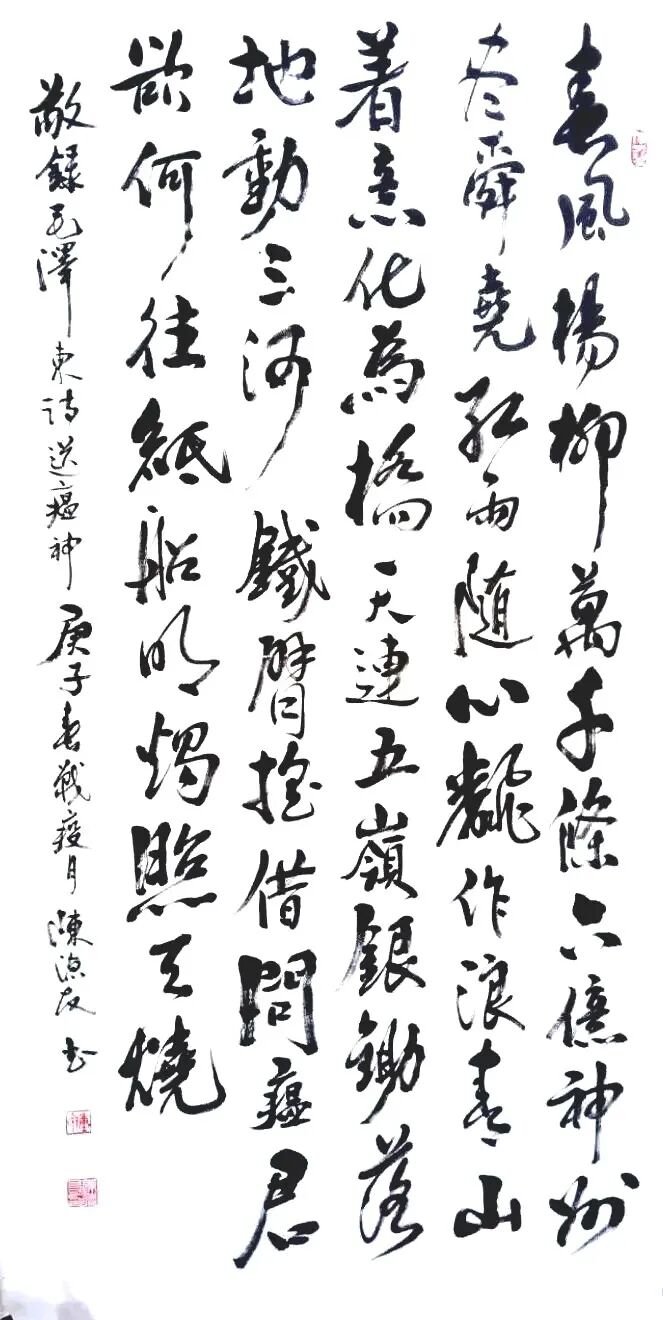 春風楊柳萬千條六億神州
尽舜堯紅雨随心翻作浪青山
着意化為橋天連五嶺銀鋤落
地動三河鐵臂摇借問瘟君
欲何往紙船明燭照天燒
敬録毛澤東詩送瘟神庚子春戰疫月书